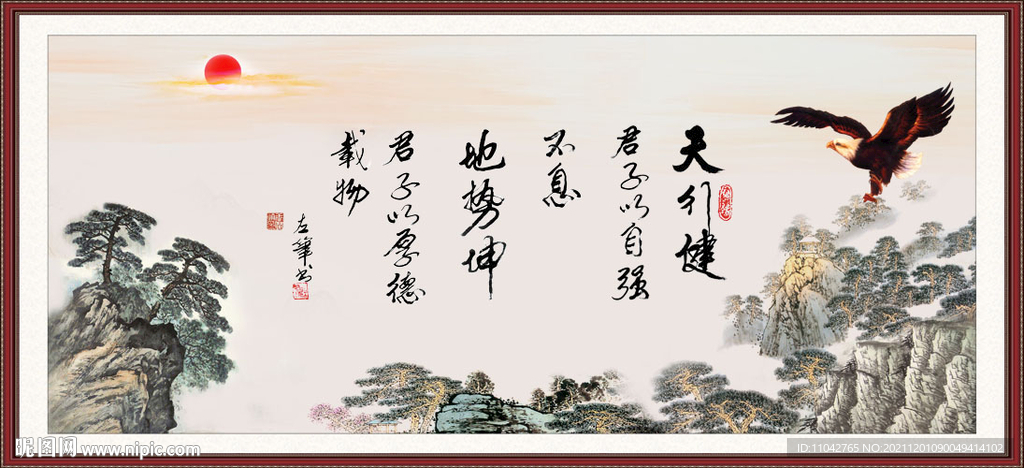 天行健
君子以自强
不息
地势坤
君子以厚德
载物
左笔书
昵图网 www.nipic.com
ID:11042765 NO:20211201090049414102